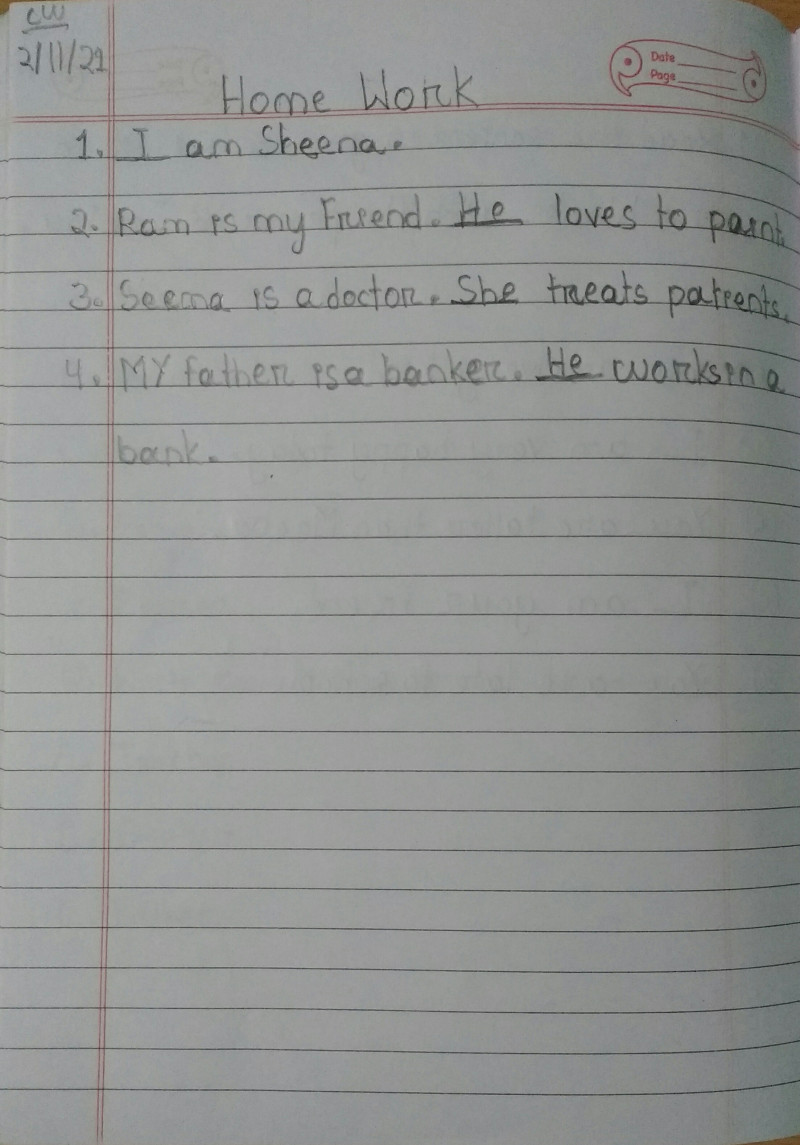 CW
2/11/21
Date
Page
Home Work
1. I am Sheena.
2. Ram is my Friend. He loves to paint.
3. Seema is a doctor. She treats patients.
4. MY father is a banker. He works in a
bank.